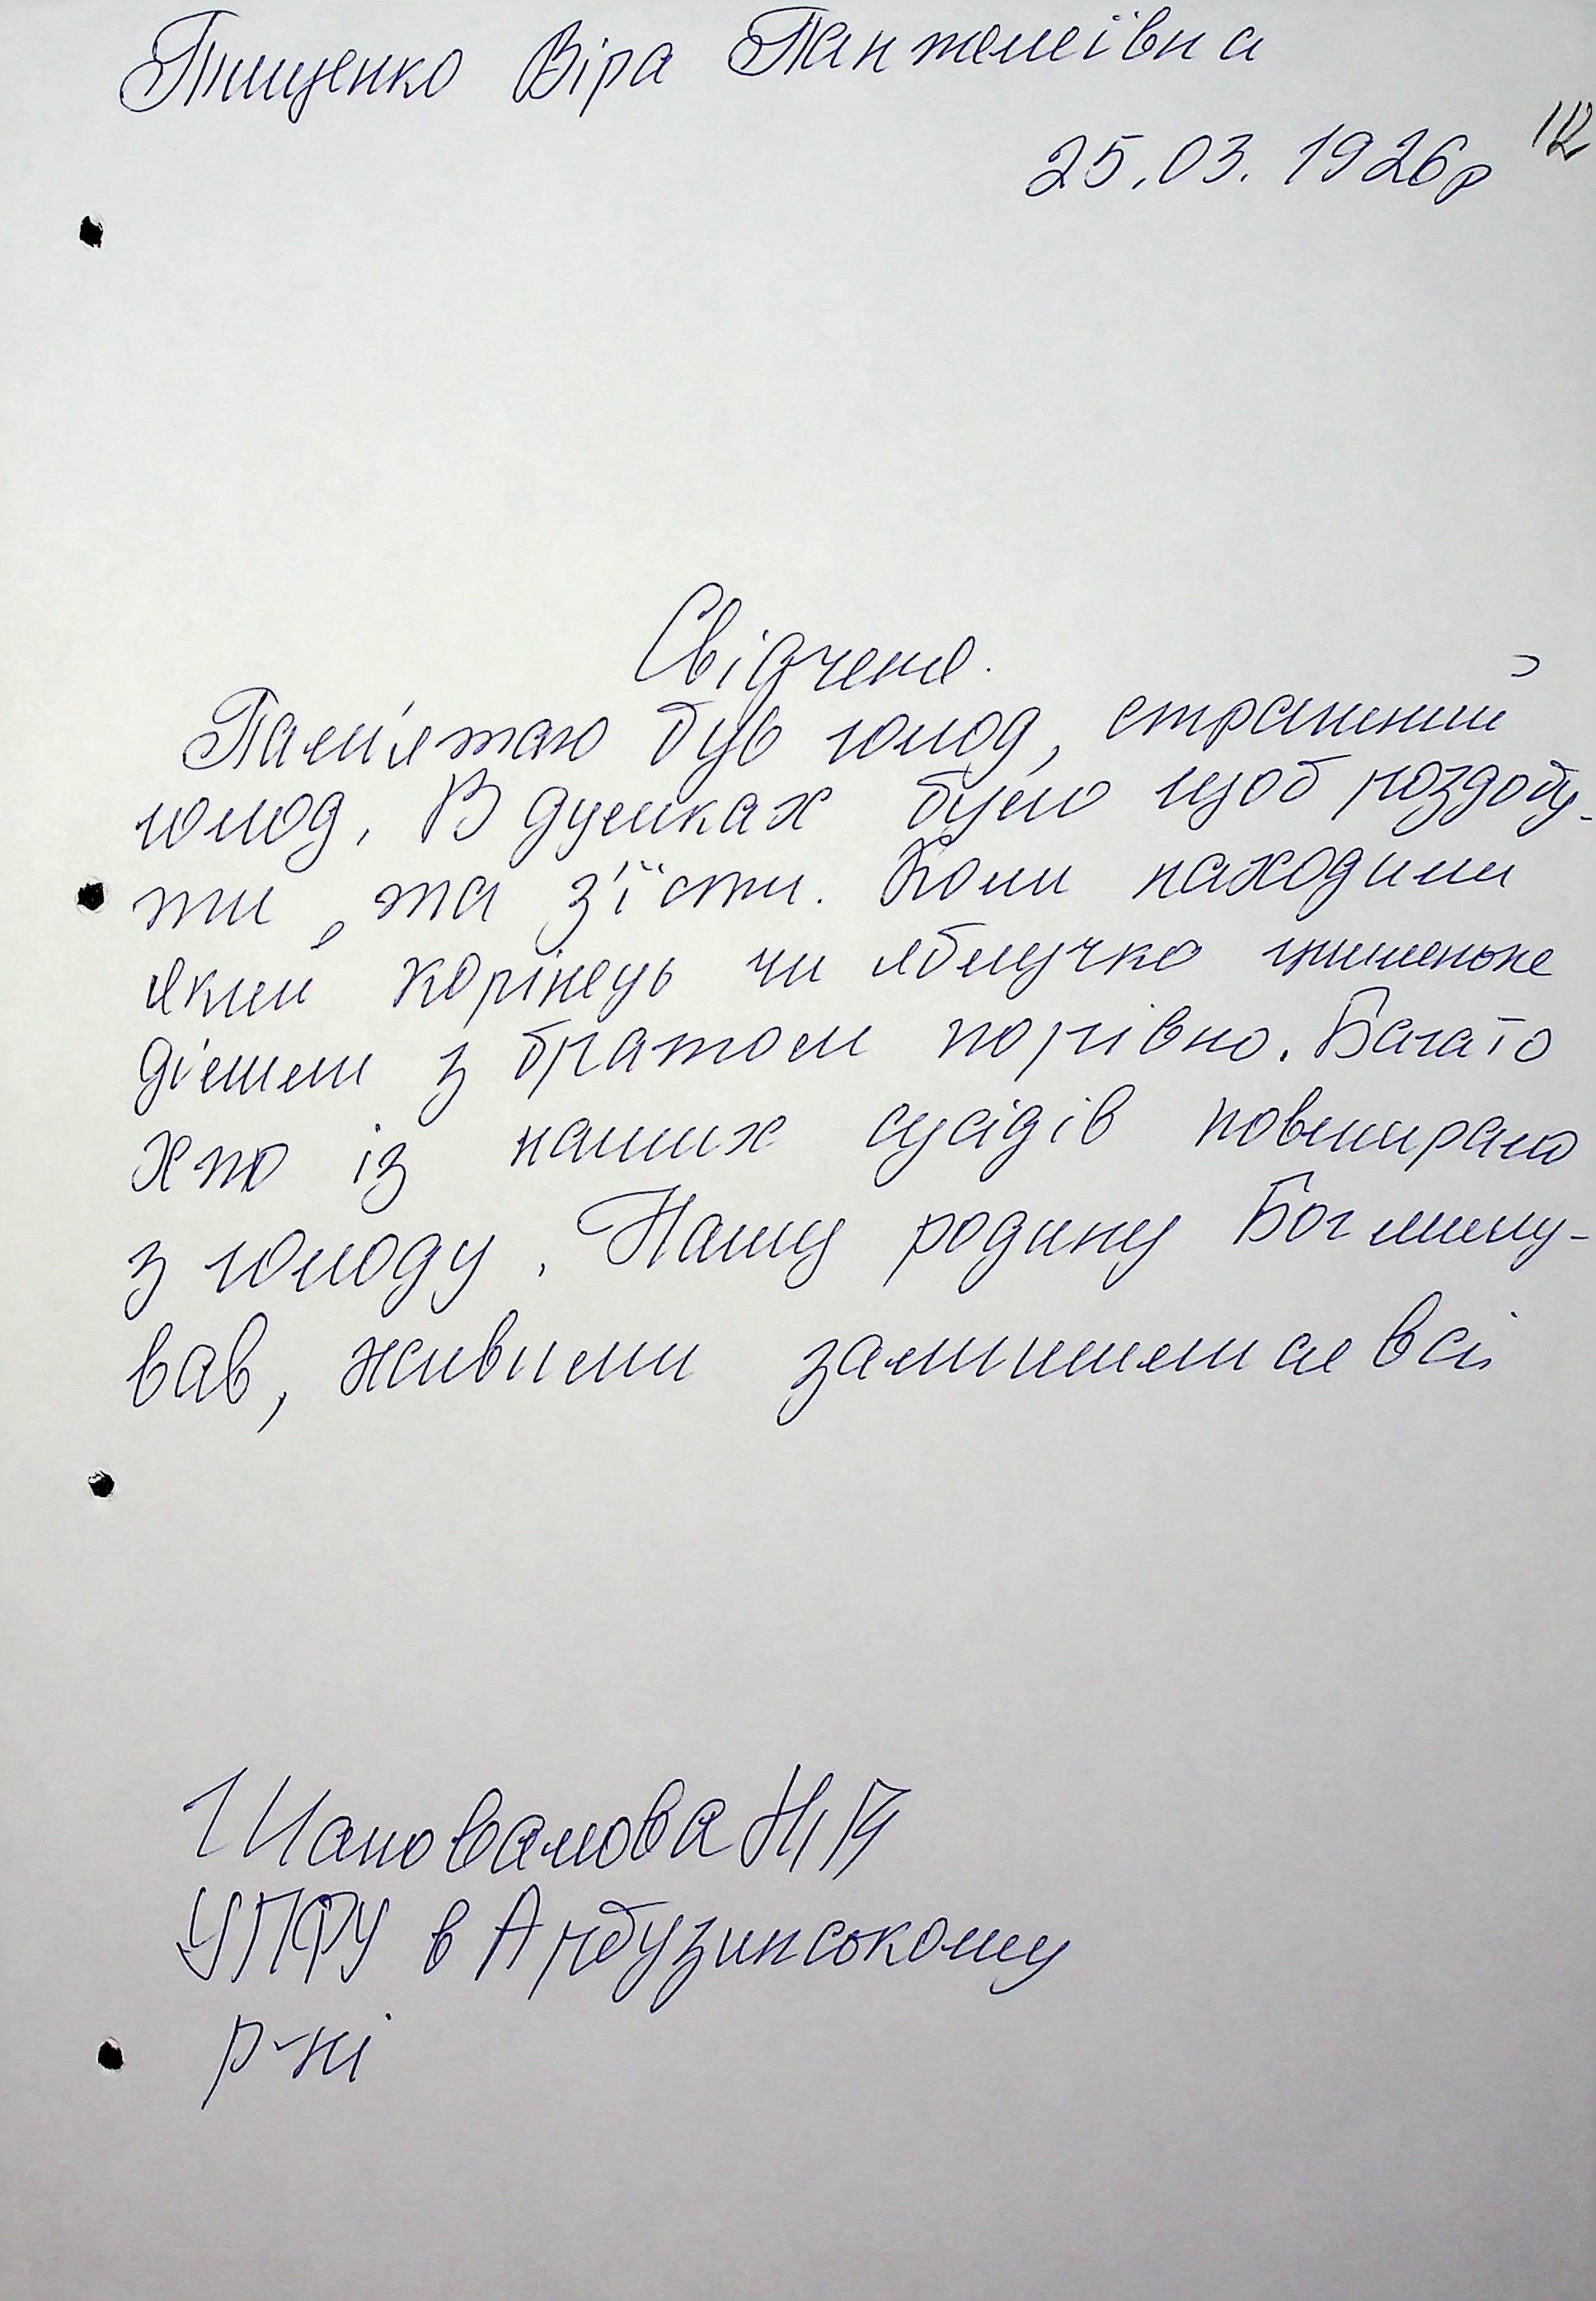 Тищенко Віра Пантелеївна
25.03.1926р
112
Свідчення.
Пам'ятаю був голод, страшний
голод. В думках було щоб роздобу-
ти, та з'їсти. Коли находили
який корінець чи яблучко гниленьке
ділили з братом порівно. Багато
хто із наших сусідів повмирало
з голоду. Нашу родину Бог милу-
вав, живими залишилися всі.
Шаповалова Н.
УПФУ в Арбузинському
р-ні